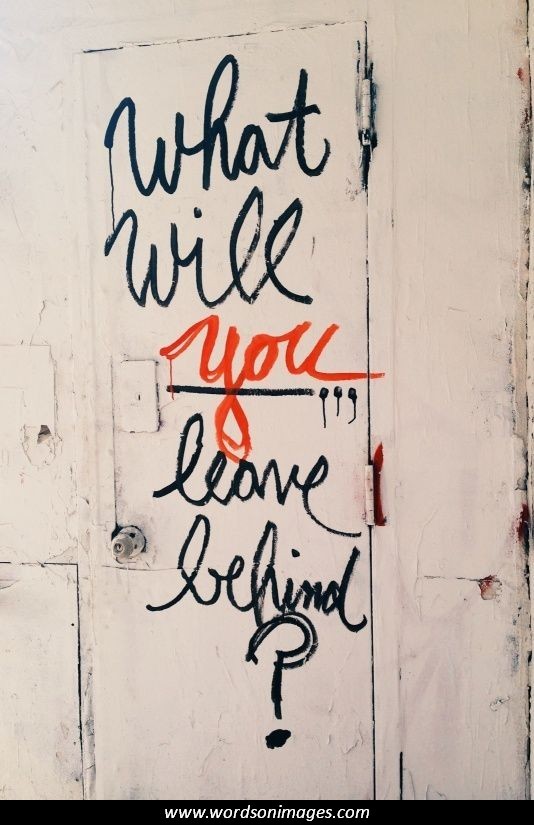 What
will
you
leave
behind
?
www.wordsonimages.com